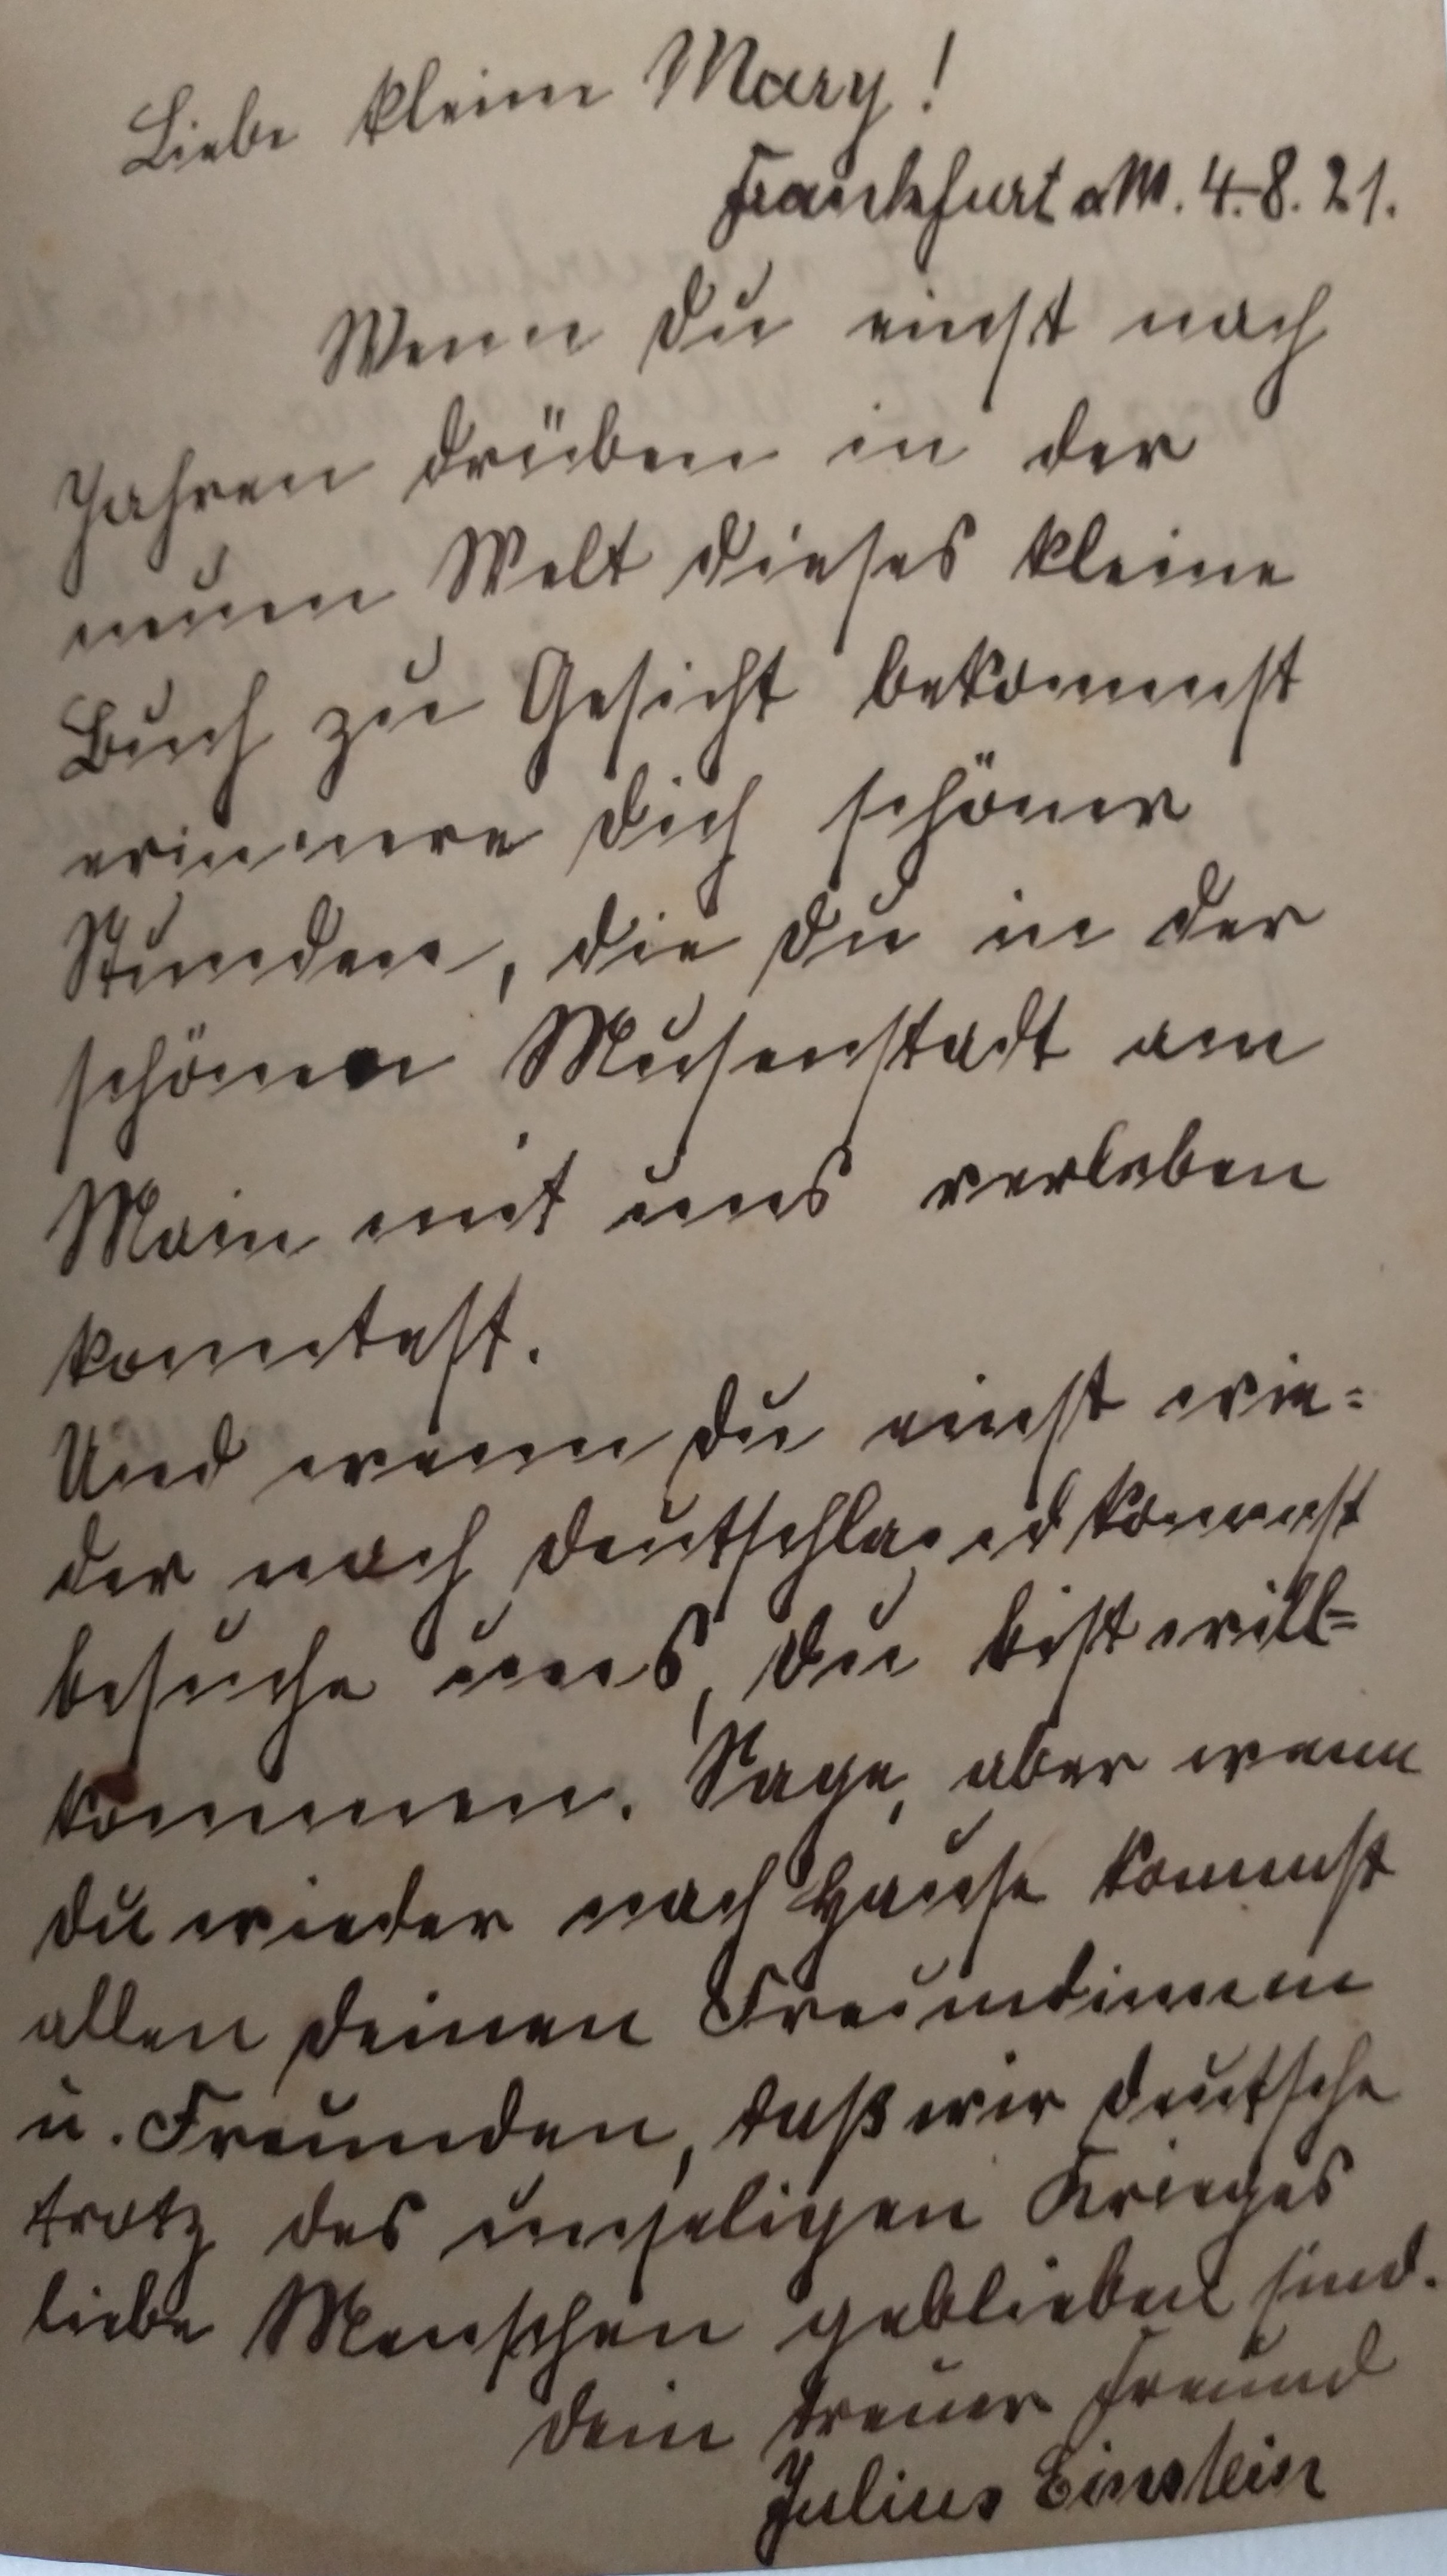 Liebe kleine Mary!
Frankfurt a M. 4.8.21.
Wenn Du einst nach
Jahren drüben in der
neuen Welt dieses kleine
Buch zu Gesicht bekommst
erinnere Dich schöner
Stunden, die Du in der
schönen Musenstadt am
Main mit uns verleben
konntest.
Und wenn Du einst wie=
der nach Deutschland kommst
besuche uns, Du bist will=
kommen. Sage, aber wenn
Du wieder nach Hause kommst
allen Deinen Freundinnen
u. Freunden, daß wir Deutsche
trotz des unseligen Krieges
liebe Menschen geblieben sind.
Dein treuer Freund
Julius Einstein